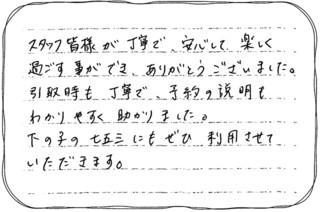 スタッフ皆様が丁寧で、安心して楽しく
過ごす事ができ、ありがとうございました。
引取時も丁寧で、予約の説明も
わかりやすく助かりました。
下の子の七五三にもぜひ利用させて
いただきます。